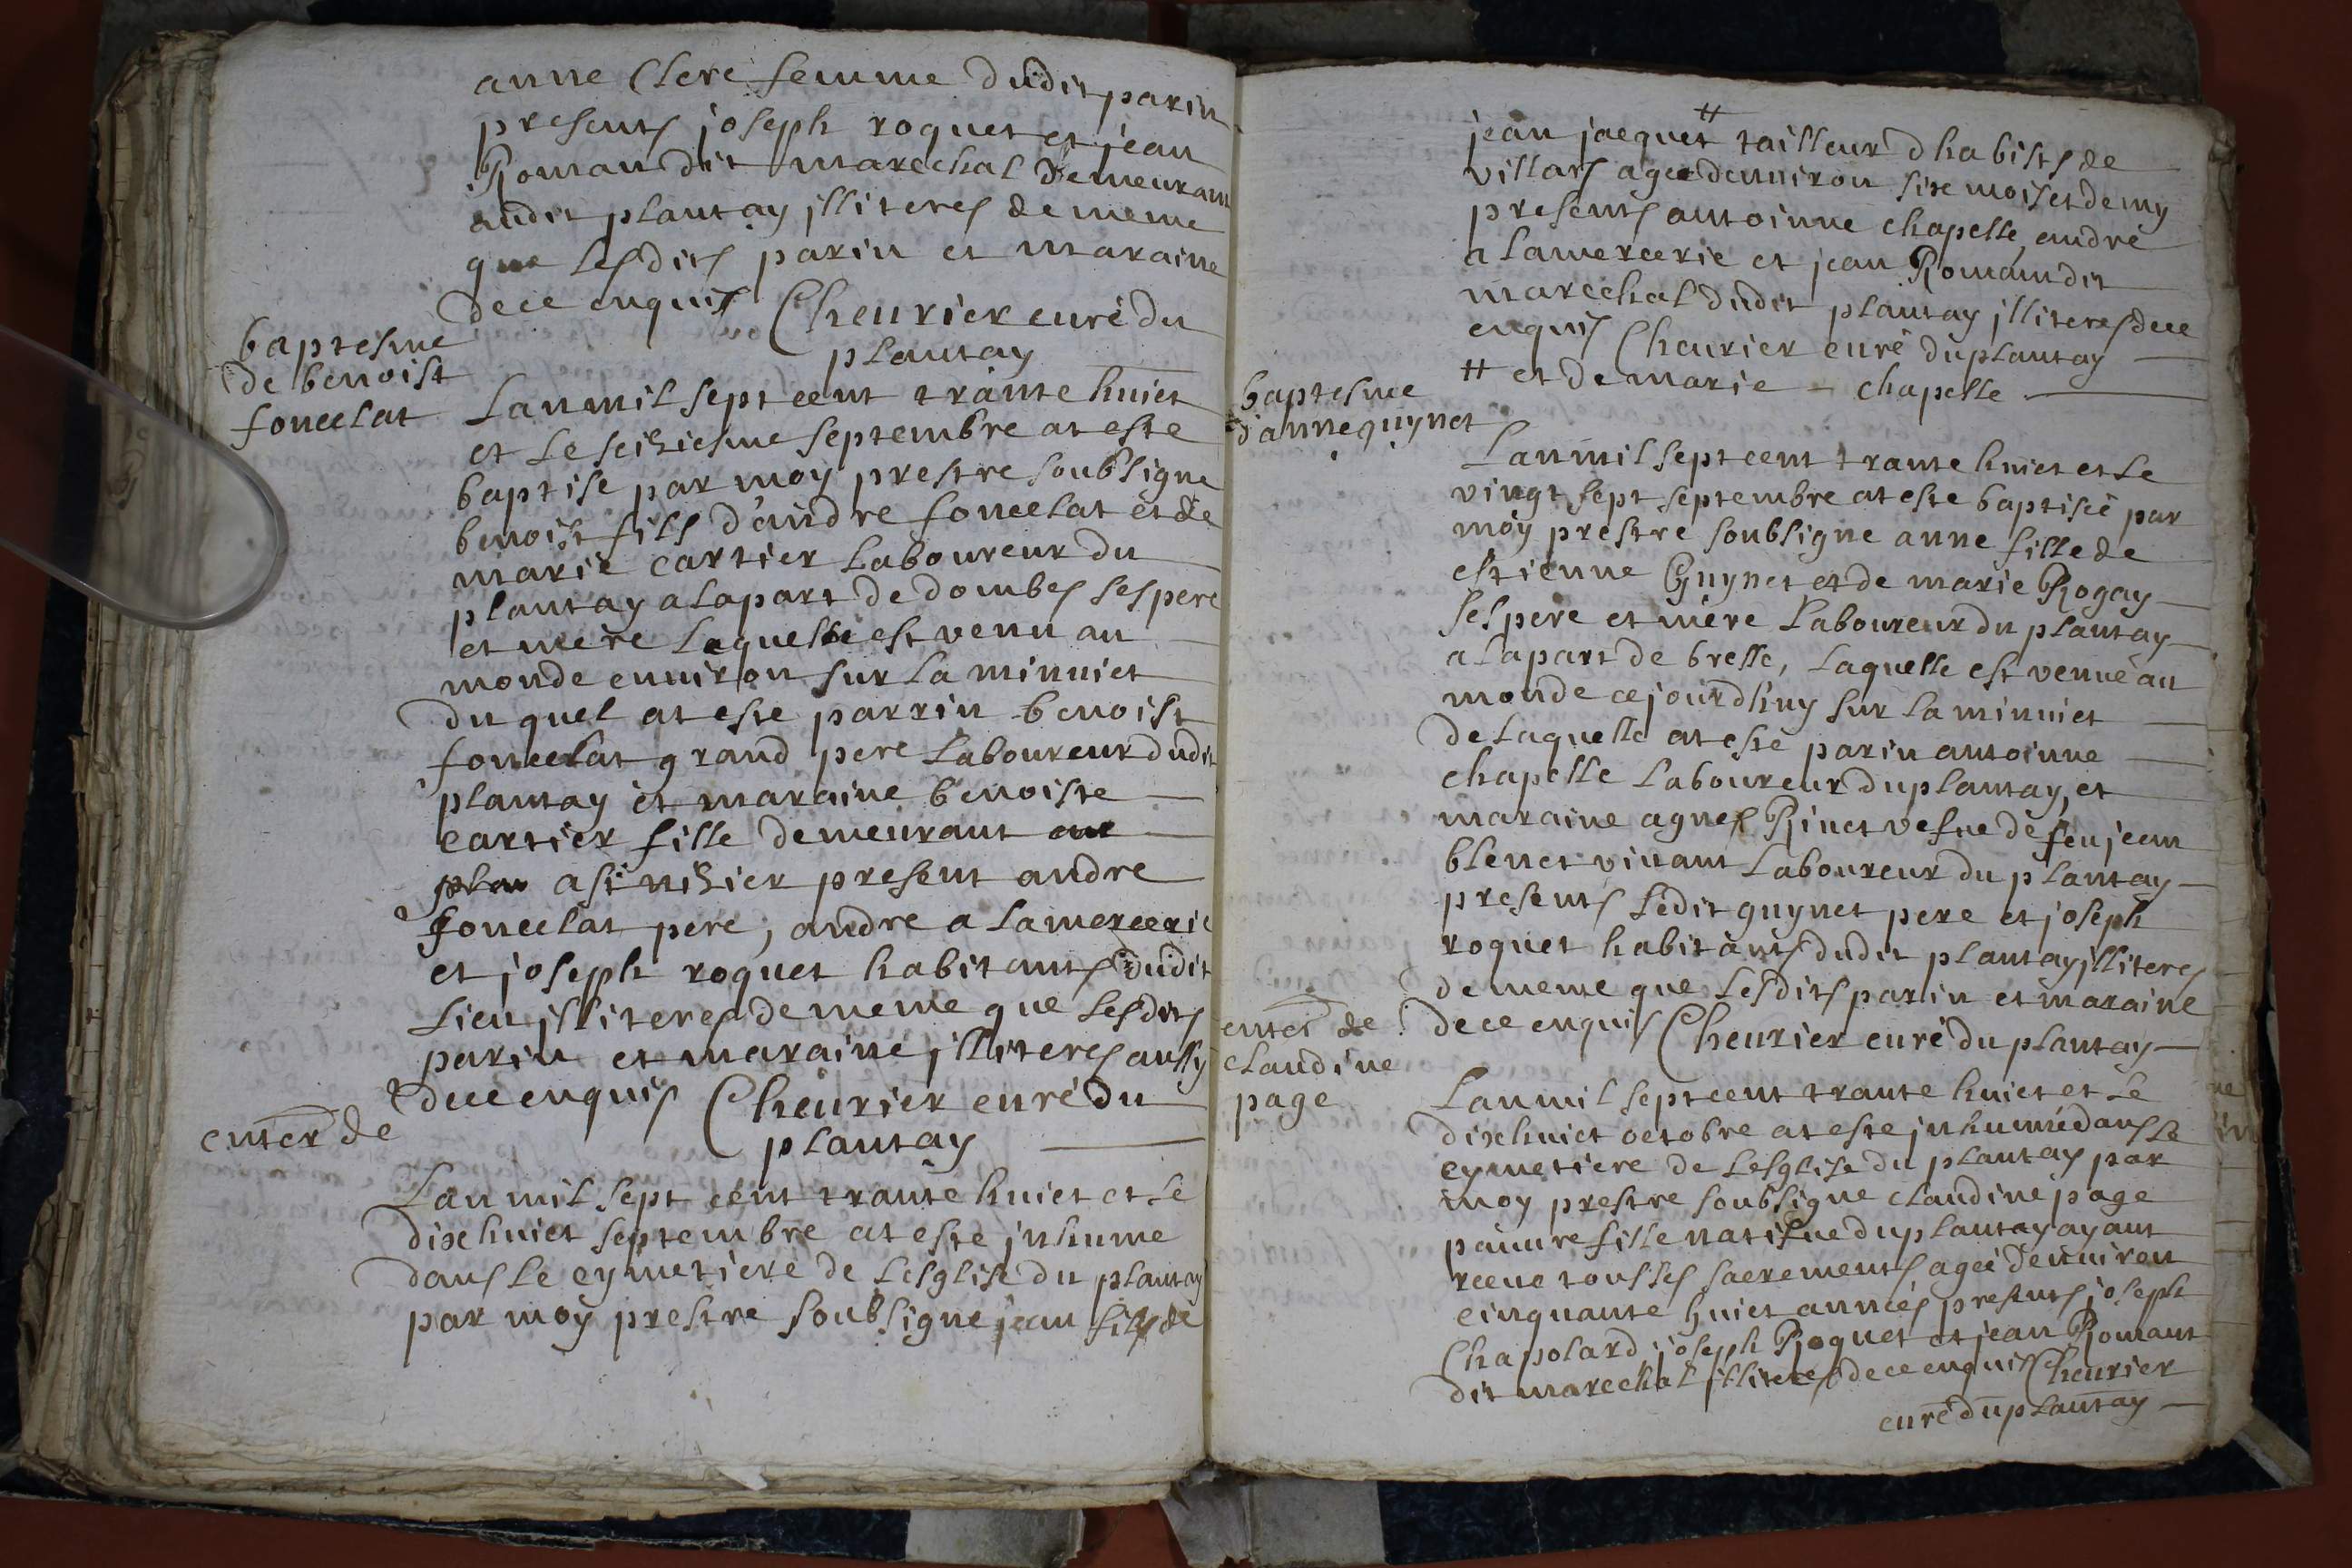 anne Clere femme dudit parin
presents joseph roquet et jean
Roman dit marechal demeurant
audit plantay jlliteres de meme
que lesdits parin et maraine
de ce enquis Cheurier curé du
plantay
baptesme
de benoist
foncelat
Lan mil sept cent trante huict
et le seiziesme septembre at este
baptise par moy prestre soubsigne
benoist fils d'andre foncelat et de
marie cartier Laboureur du
plantay a la part de dombes ses pere
et mere laquelle est venu au
monde enuiron sur la minuict
du quel at este parrin benoist
foncelat grand pere Laboureur dudit
plantay et maraine benoiste
cartier fille demeurant au
plan a st nizier present andre
foncelat pere, andre a lamercerie
et joseph roquet habitants dudit
lieu jlliteres de meme que lesdits
parin et maraine jlliteres aussy
de ce enquis Cheurier curé du
plantay
enter de
Lan mil sept cent trante huict et le
dixhuict septembre at esté jnhume
dans le cymetiere de Lesglise du plantay
par moy prestre soubsigne jean fils de
jean jacquet # tailleur dhabists de
villars agee denuiron six mois et demy
presents antoinne chapelle, andré
a lamercerie et jean Romain dit
marechal dudit plantay jlliteres de ce
enquis Cheurier curé du plantay
# et de marie - chapelle
baptesme
d'anne guynet
Lan mil sept cent trante huict et le
vingt sept septembre at este baptisée par
moy prestre soubsigne anne fille de
estienne Guynet et de marie Rogay
ses pere et mere Laboureur du plantay
a la part de bresse, laquelle est venue au
monde ce jourdhuy sur la minuict
de laquelle at esté parin antoinne
chapelle Laboureur du plantay, et
maraine agnes Rinet vefue de feu jean
blenet viuant Laboureur du plantay
presents ledit guynet pere et joseph
roquet habitants dudit plantay jlliteres
de meme que lesdits parin et maraine
de ce enquis Cheurier curé du plantay
enter de
claudine
page
Lan mil sept cent trante huict et le
dixhuict octobre at este jnhumé dans le
cymetiere de Lesglise du plantay par
moy prestre soubsigne claudine page
pauure fille natifue du plantay ayant
receue tous les sacrements agée denuiron
cinquante huict années presents joseph
Chapolard joseph Roquet et jean Romant
dit marechal jlliteres de ce enquis Cheurier
curé du plantay